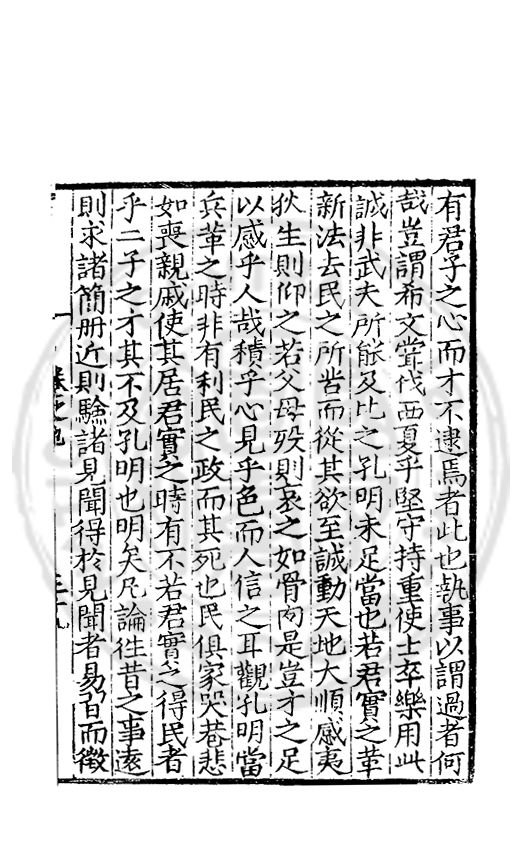 有君子之心而才不逮焉者此也執事以謂過者何
哉豈謂希文嘗伐西夏乎堅守持重使士卒樂用此
誠非武夫所能及比之孔明未足當也若君實之革
新法去民之所甞而從其欲至誠動天地大順感夷
狄生則仰之若父母殁則哀之如骨肉是豈才之足
以感乎人哉積乎心見乎色而人信之耳觀孔明當
兵革之時非有利民之政而其死也民俱家哭巷悲
如喪親戚使其居君實之時有不若君實之得民者
乎二子之才其不及孔明也明矣凡論徃昔之事遠
則求諸簡册近則驗諸見聞得於見聞者易習而徵